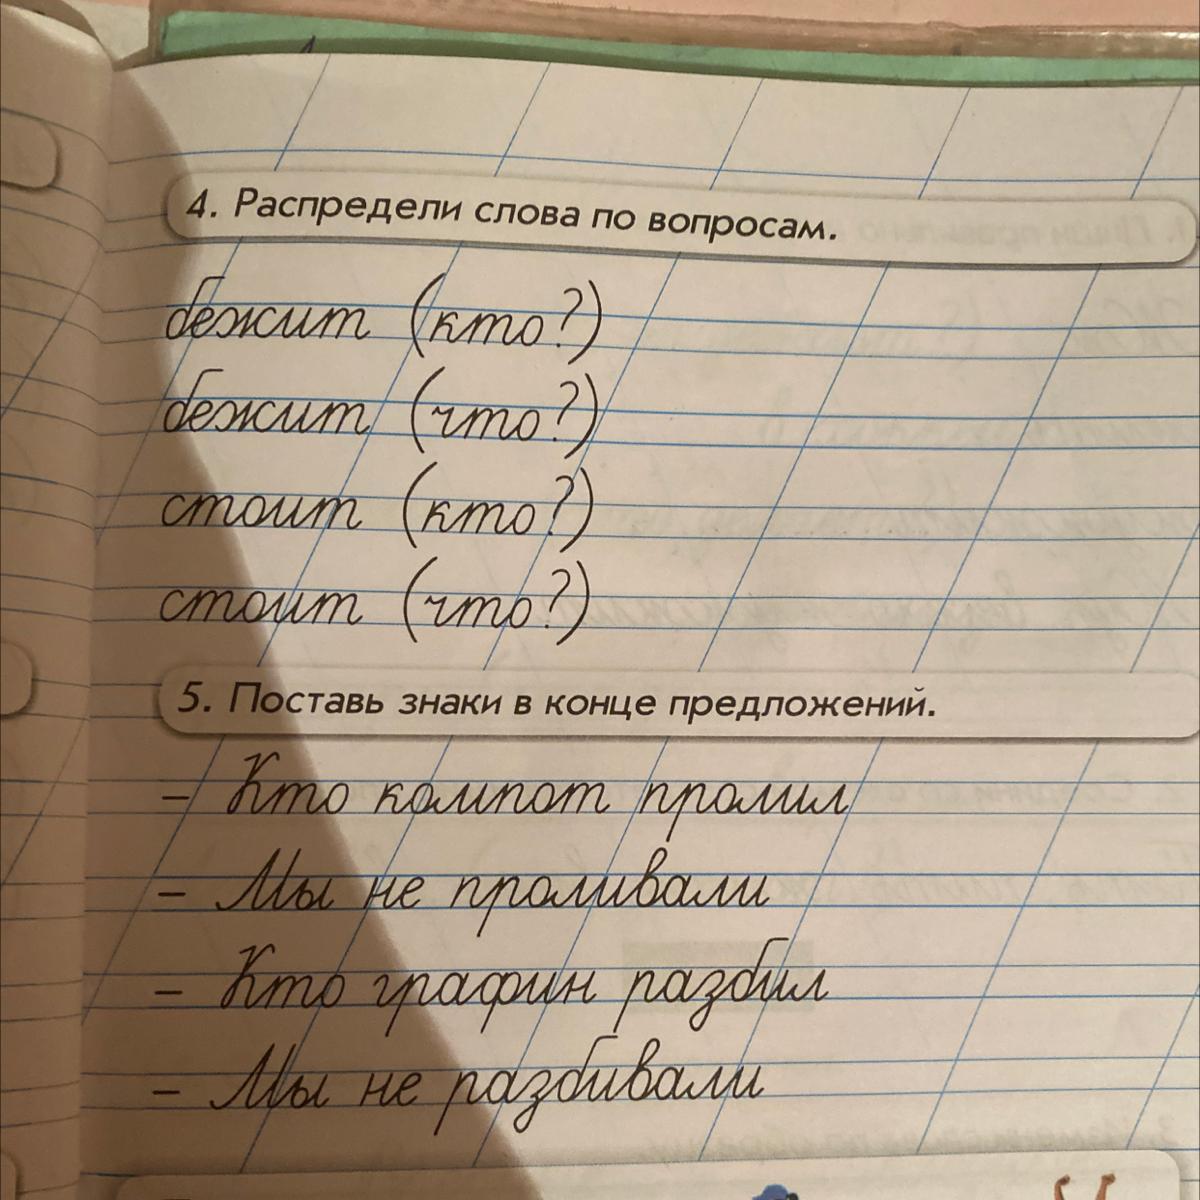 4. Распредели слова по вопросам.
бежит (кто?)
бежит (что?)
стоит (кто?)
стоит (что?)
5. Поставь знаки в конце предложений.
– Кто компот пролил
– Мы не проливали
– Кто графин разбил
– Мы не разбивали